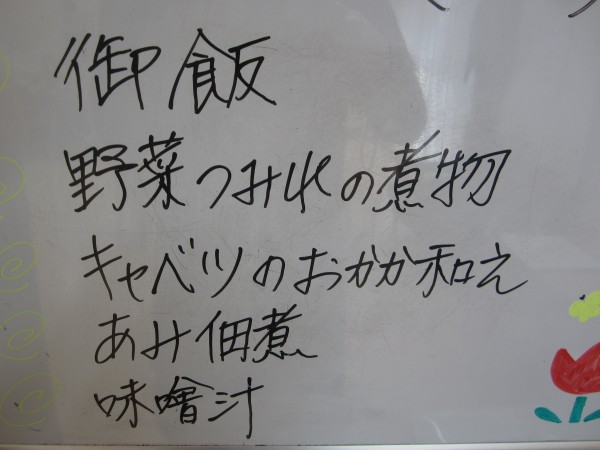 御飯
野菜つみれの煮物
キャベツのおかか和え
あみ佃煮
味噌汁